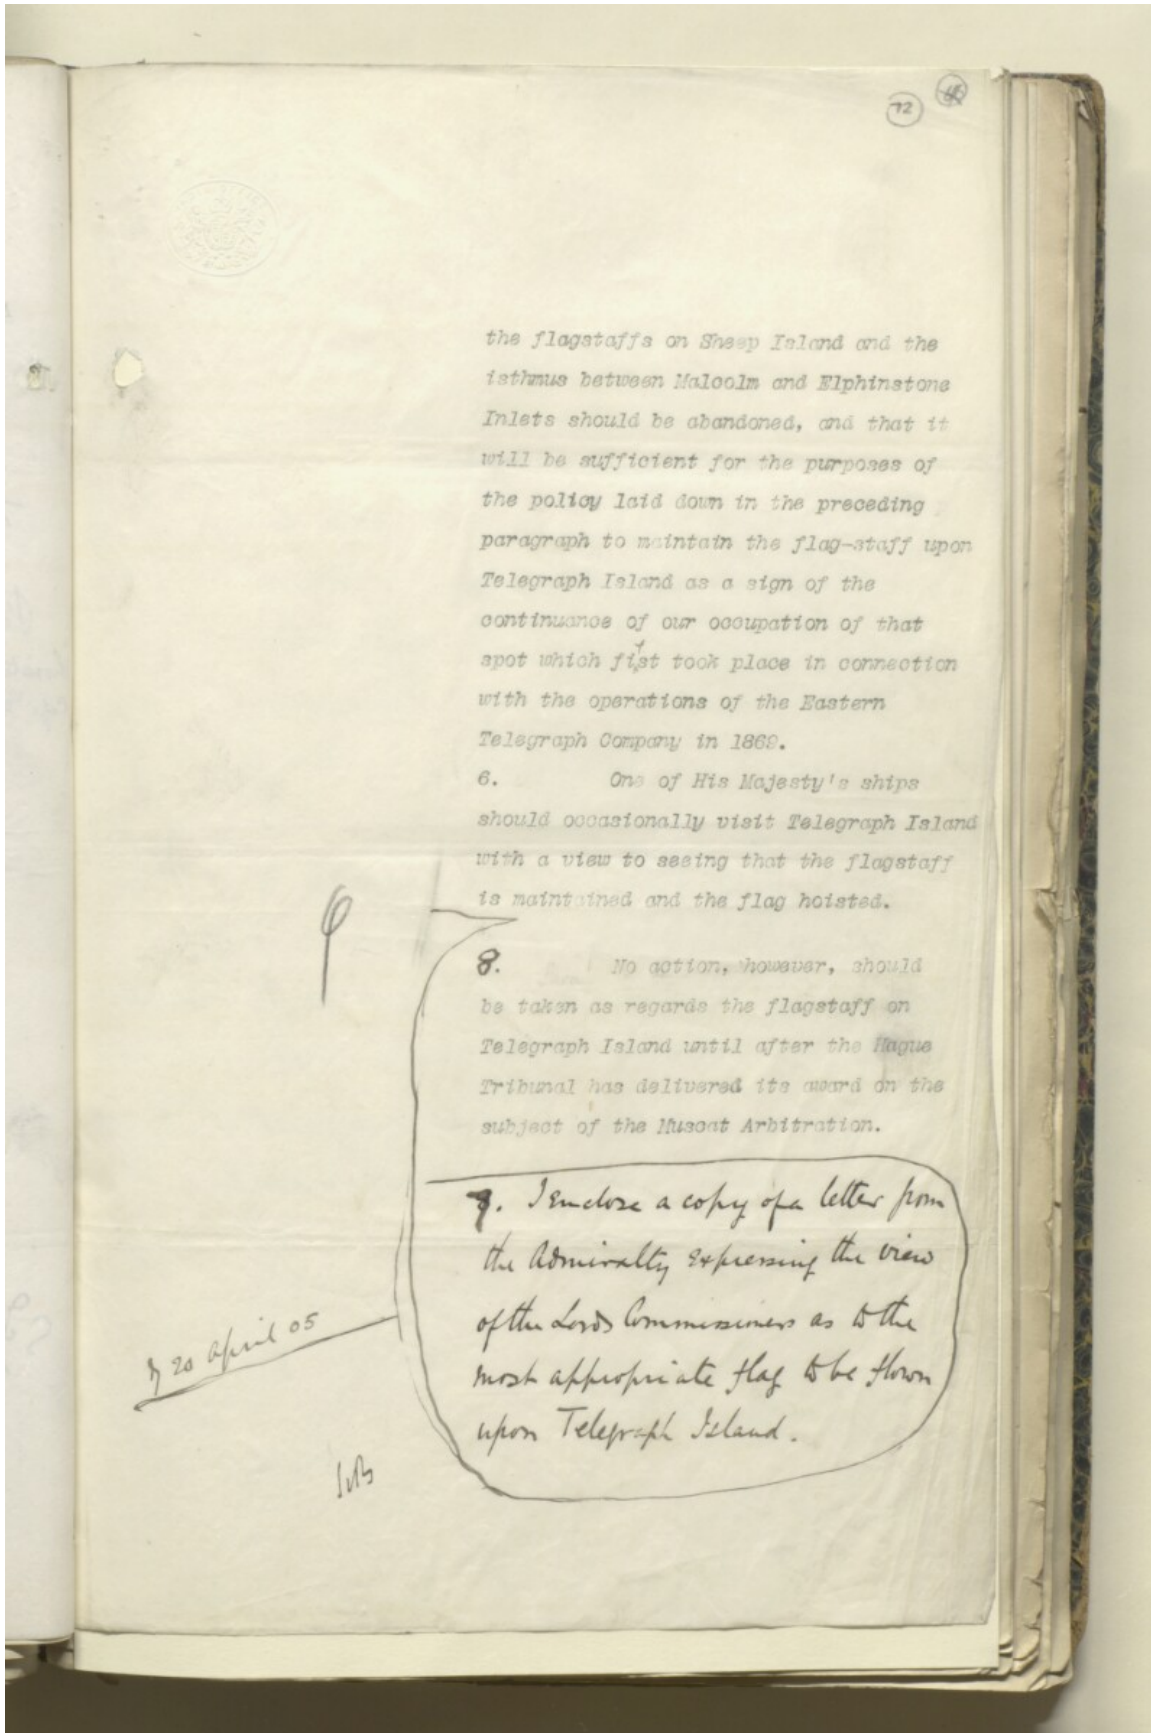 72
the flagstaffs on Sheep Island and the
isthmus between Malcolm and Elphinstone
Inlets should be abandoned, and that it
will be sufficient for the purposes of
the policy laid down in the preceding
paragraph to maintain the flag-staff upon
Telegraph Island as a sign of the
continuance of our occupation of that
spot which first took place in connection
with the operations of the Eastern
Telegraph Company in 1869.
6. One of His Majesty's ships
should occasionally visit Telegraph Island
with a view to seeing that the flagstaff
is maintained and the flag hoisted.
8. No action, however, should
be taken as regards the flagstaff on
Telegraph Island until after the Hague
Tribunal has delivered its award on the
subject of the Muscat Arbitration.
7. I enclose a copy of a letter from
the Admiralty expressing the view
of the Lords Commissioners as to the
most appropriate flag to be flown
upon Telegraph Island.
20 April 05